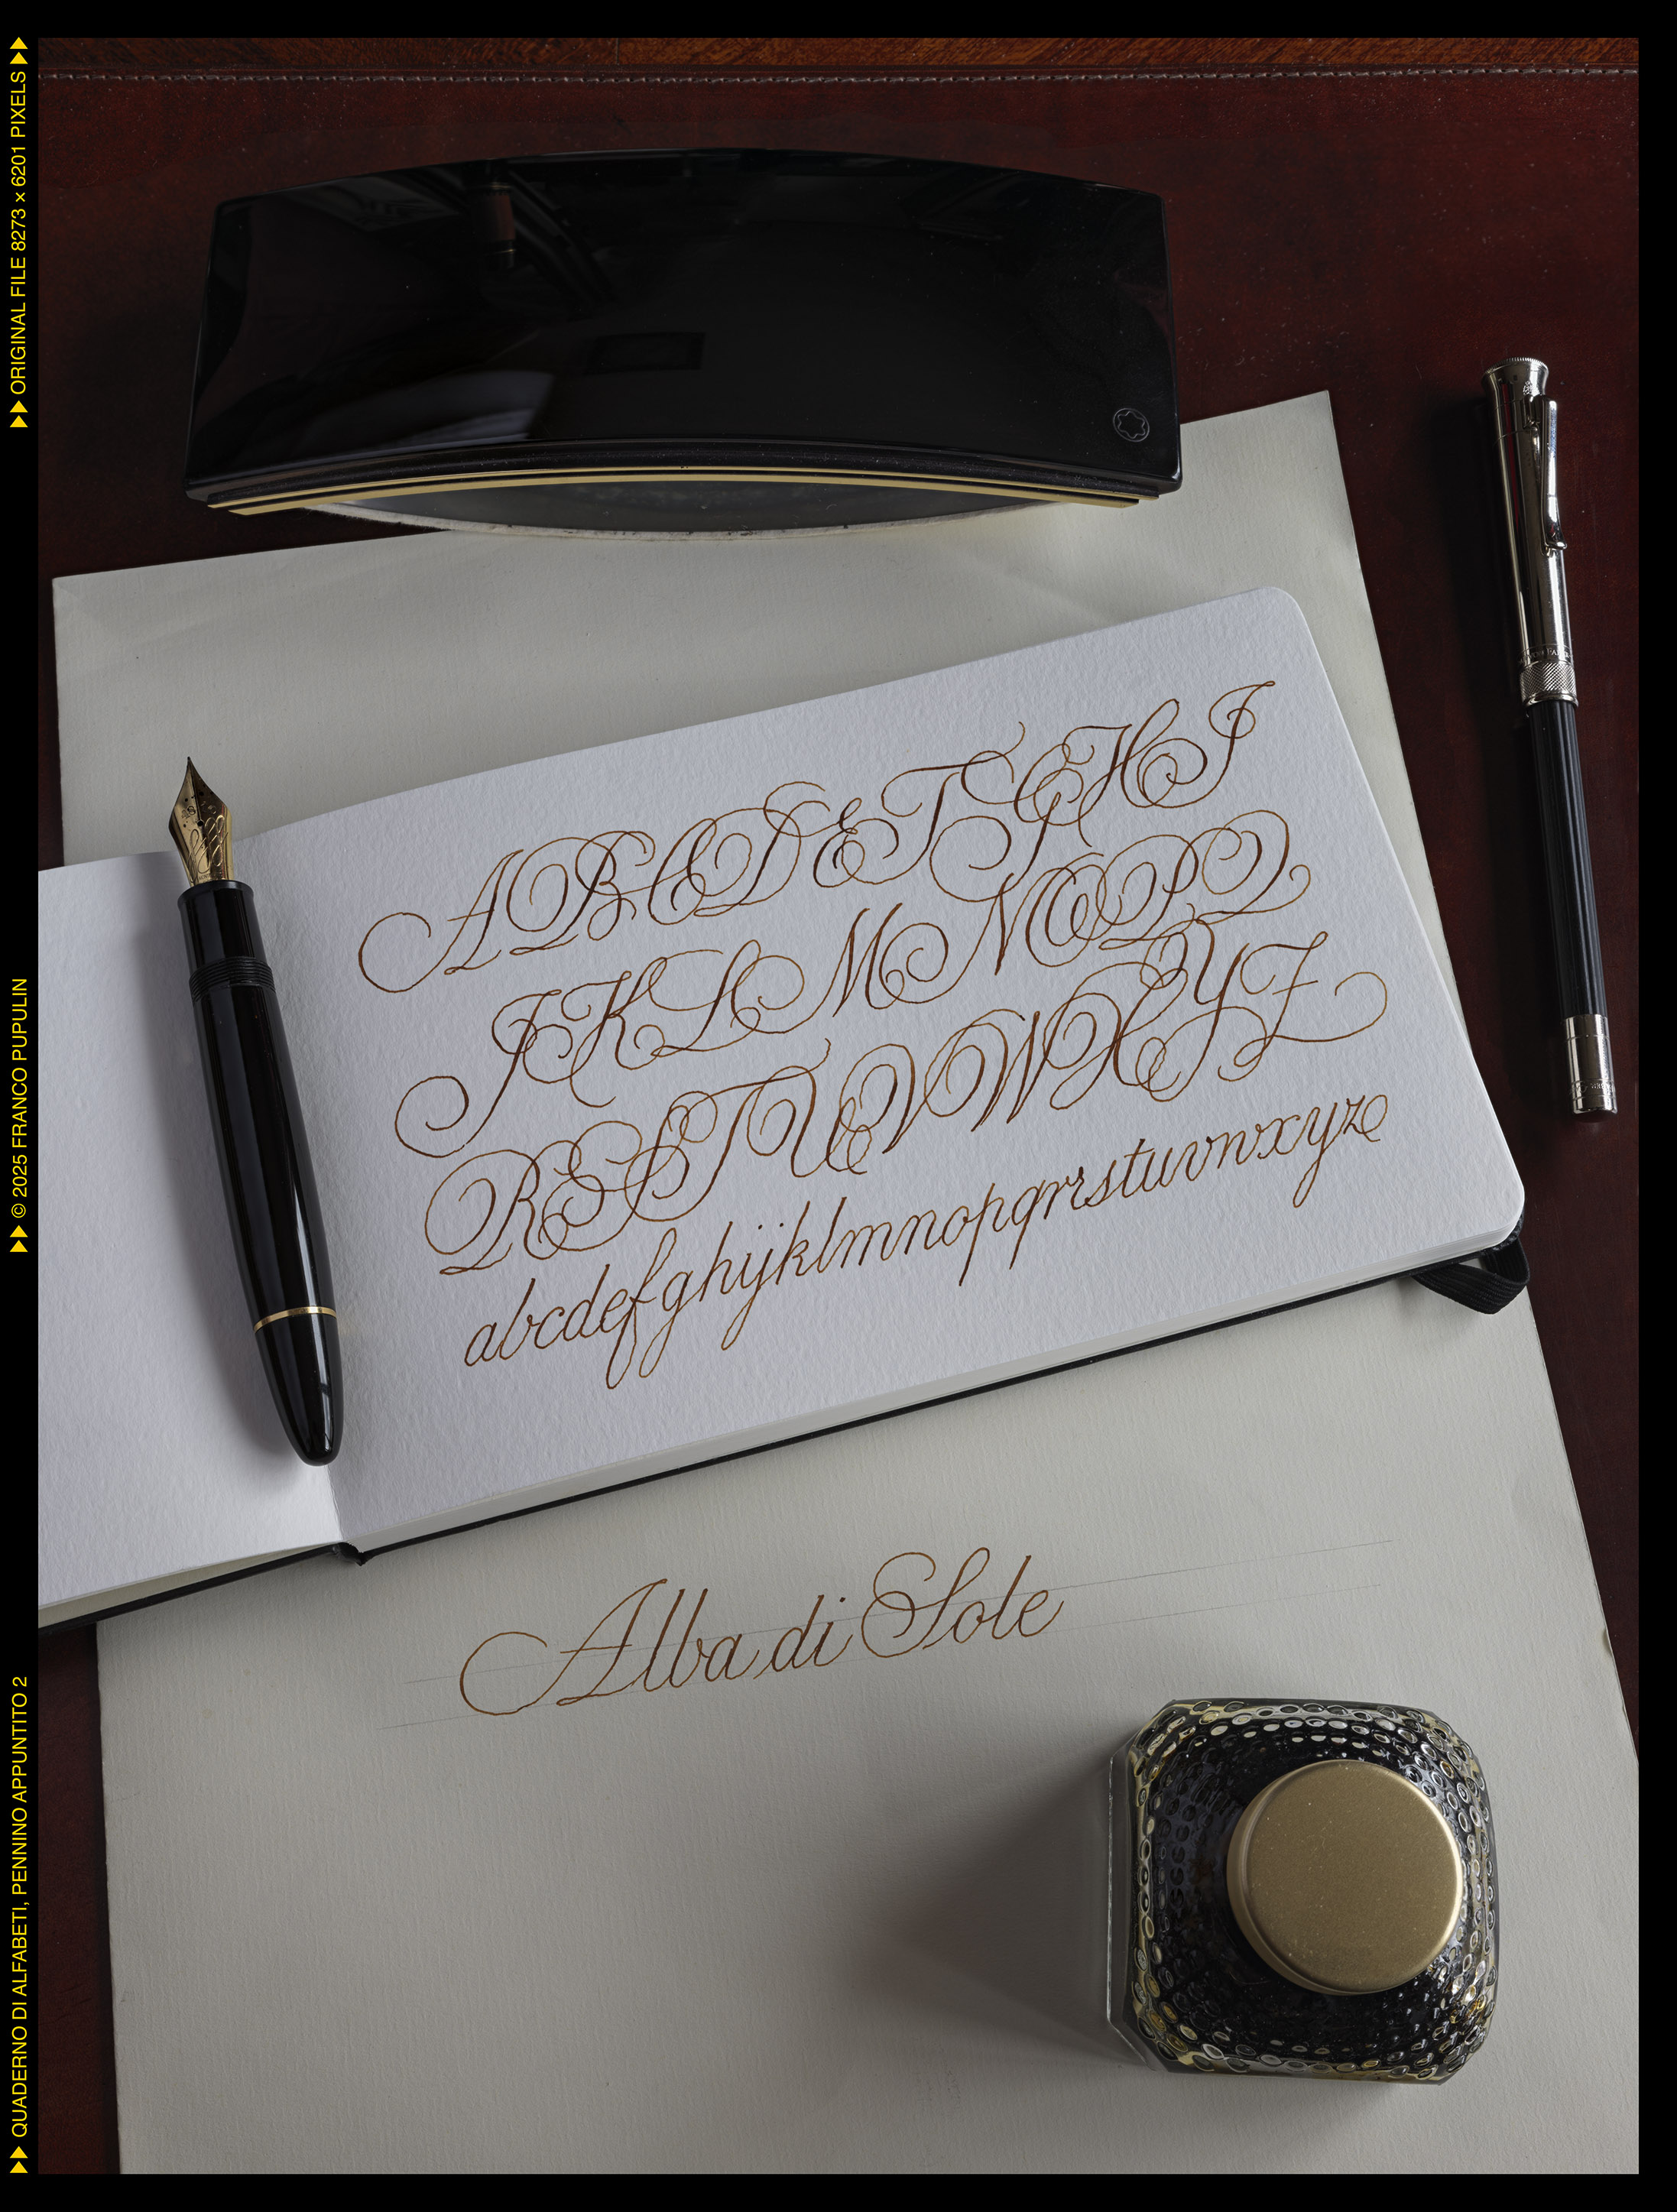 A B C D E F G H I
J K L M N O P Q
R S T U V W X Y Z
abcdefghijklmnopqrrstuvwxyz
Alba di Sole
ORIGINAL FILE 8273 × 6201 PIXELS
© 2025 FRANCO PUPULIN
QUADERNO DI ALFABETI, PENNINO APPUNTITO 2